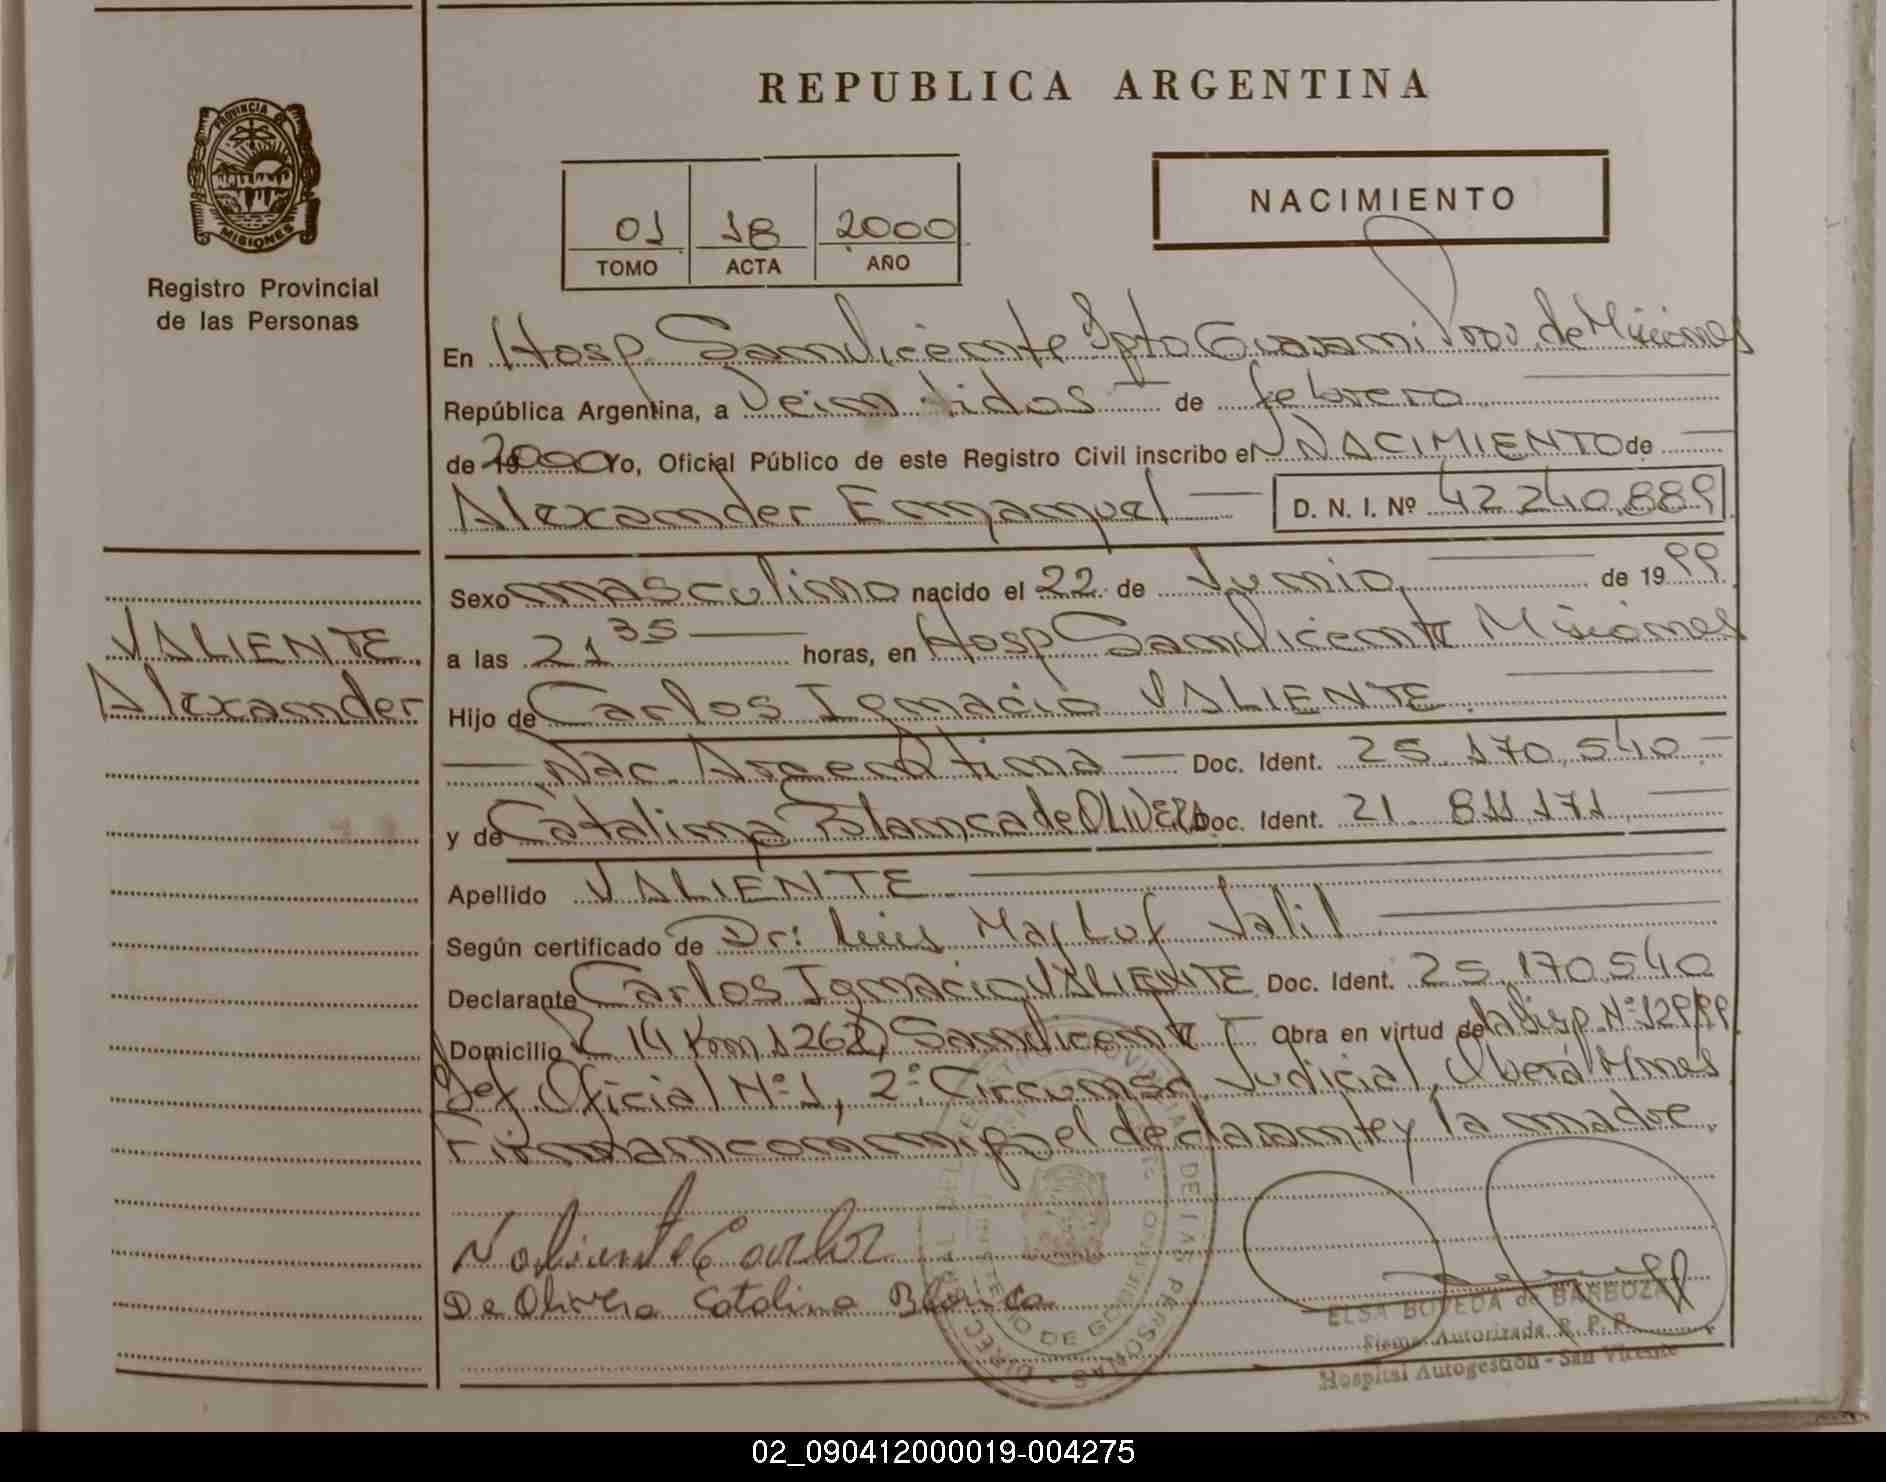 REPUBLICA ARGENTINA
PROVINCIA DE
MISIONES
Registro Provincial
de las Personas
01 18 2000
TOMO ACTA AÑO
NACIMIENTO
En Hosp San Vicente Dpto Guarani Prov. de Misiones
República Argentina, a Veintidos de febrero
de 2000 Yo, Oficial Público de este Registro Civil inscribo el NACIMIENTO de
Alexander Emanuel D. N. I. Nº 42 240.889
Sexo masculino nacido el 22 de Junio de 1999
VALIENTE
Alexander
a las 21 35 horas, en Hosp San Vicente Misiones
Hijo de Carlos Ignacio VALIENTE.
Nac. Argentina Doc. Ident. 25.170.540
y de Catalina Blanca de OLIVERA Doc. Ident. 21.811.171
Apellido VALIENTE
Según certificado de Dr: Luis Valil
Declarante Carlos Ignacio VALIENTE Doc. Ident. 25.170.540
Domicilio 14 Km 1262, San Vicente Obra en virtud de la Disp. Nº 12999
Def. Oficial Nº 1, 2º Circunsc. Judicial, Oberá Mnes
Firman conmigo el declarante y la madre.
Valiente Carlos
De Olivera Catalina Blanca
ELSA BOVEDA de BARBOZA
Firma Autorizada R. P. P.
Hospital Autogestión - San Vicente
02_090412000019-004275